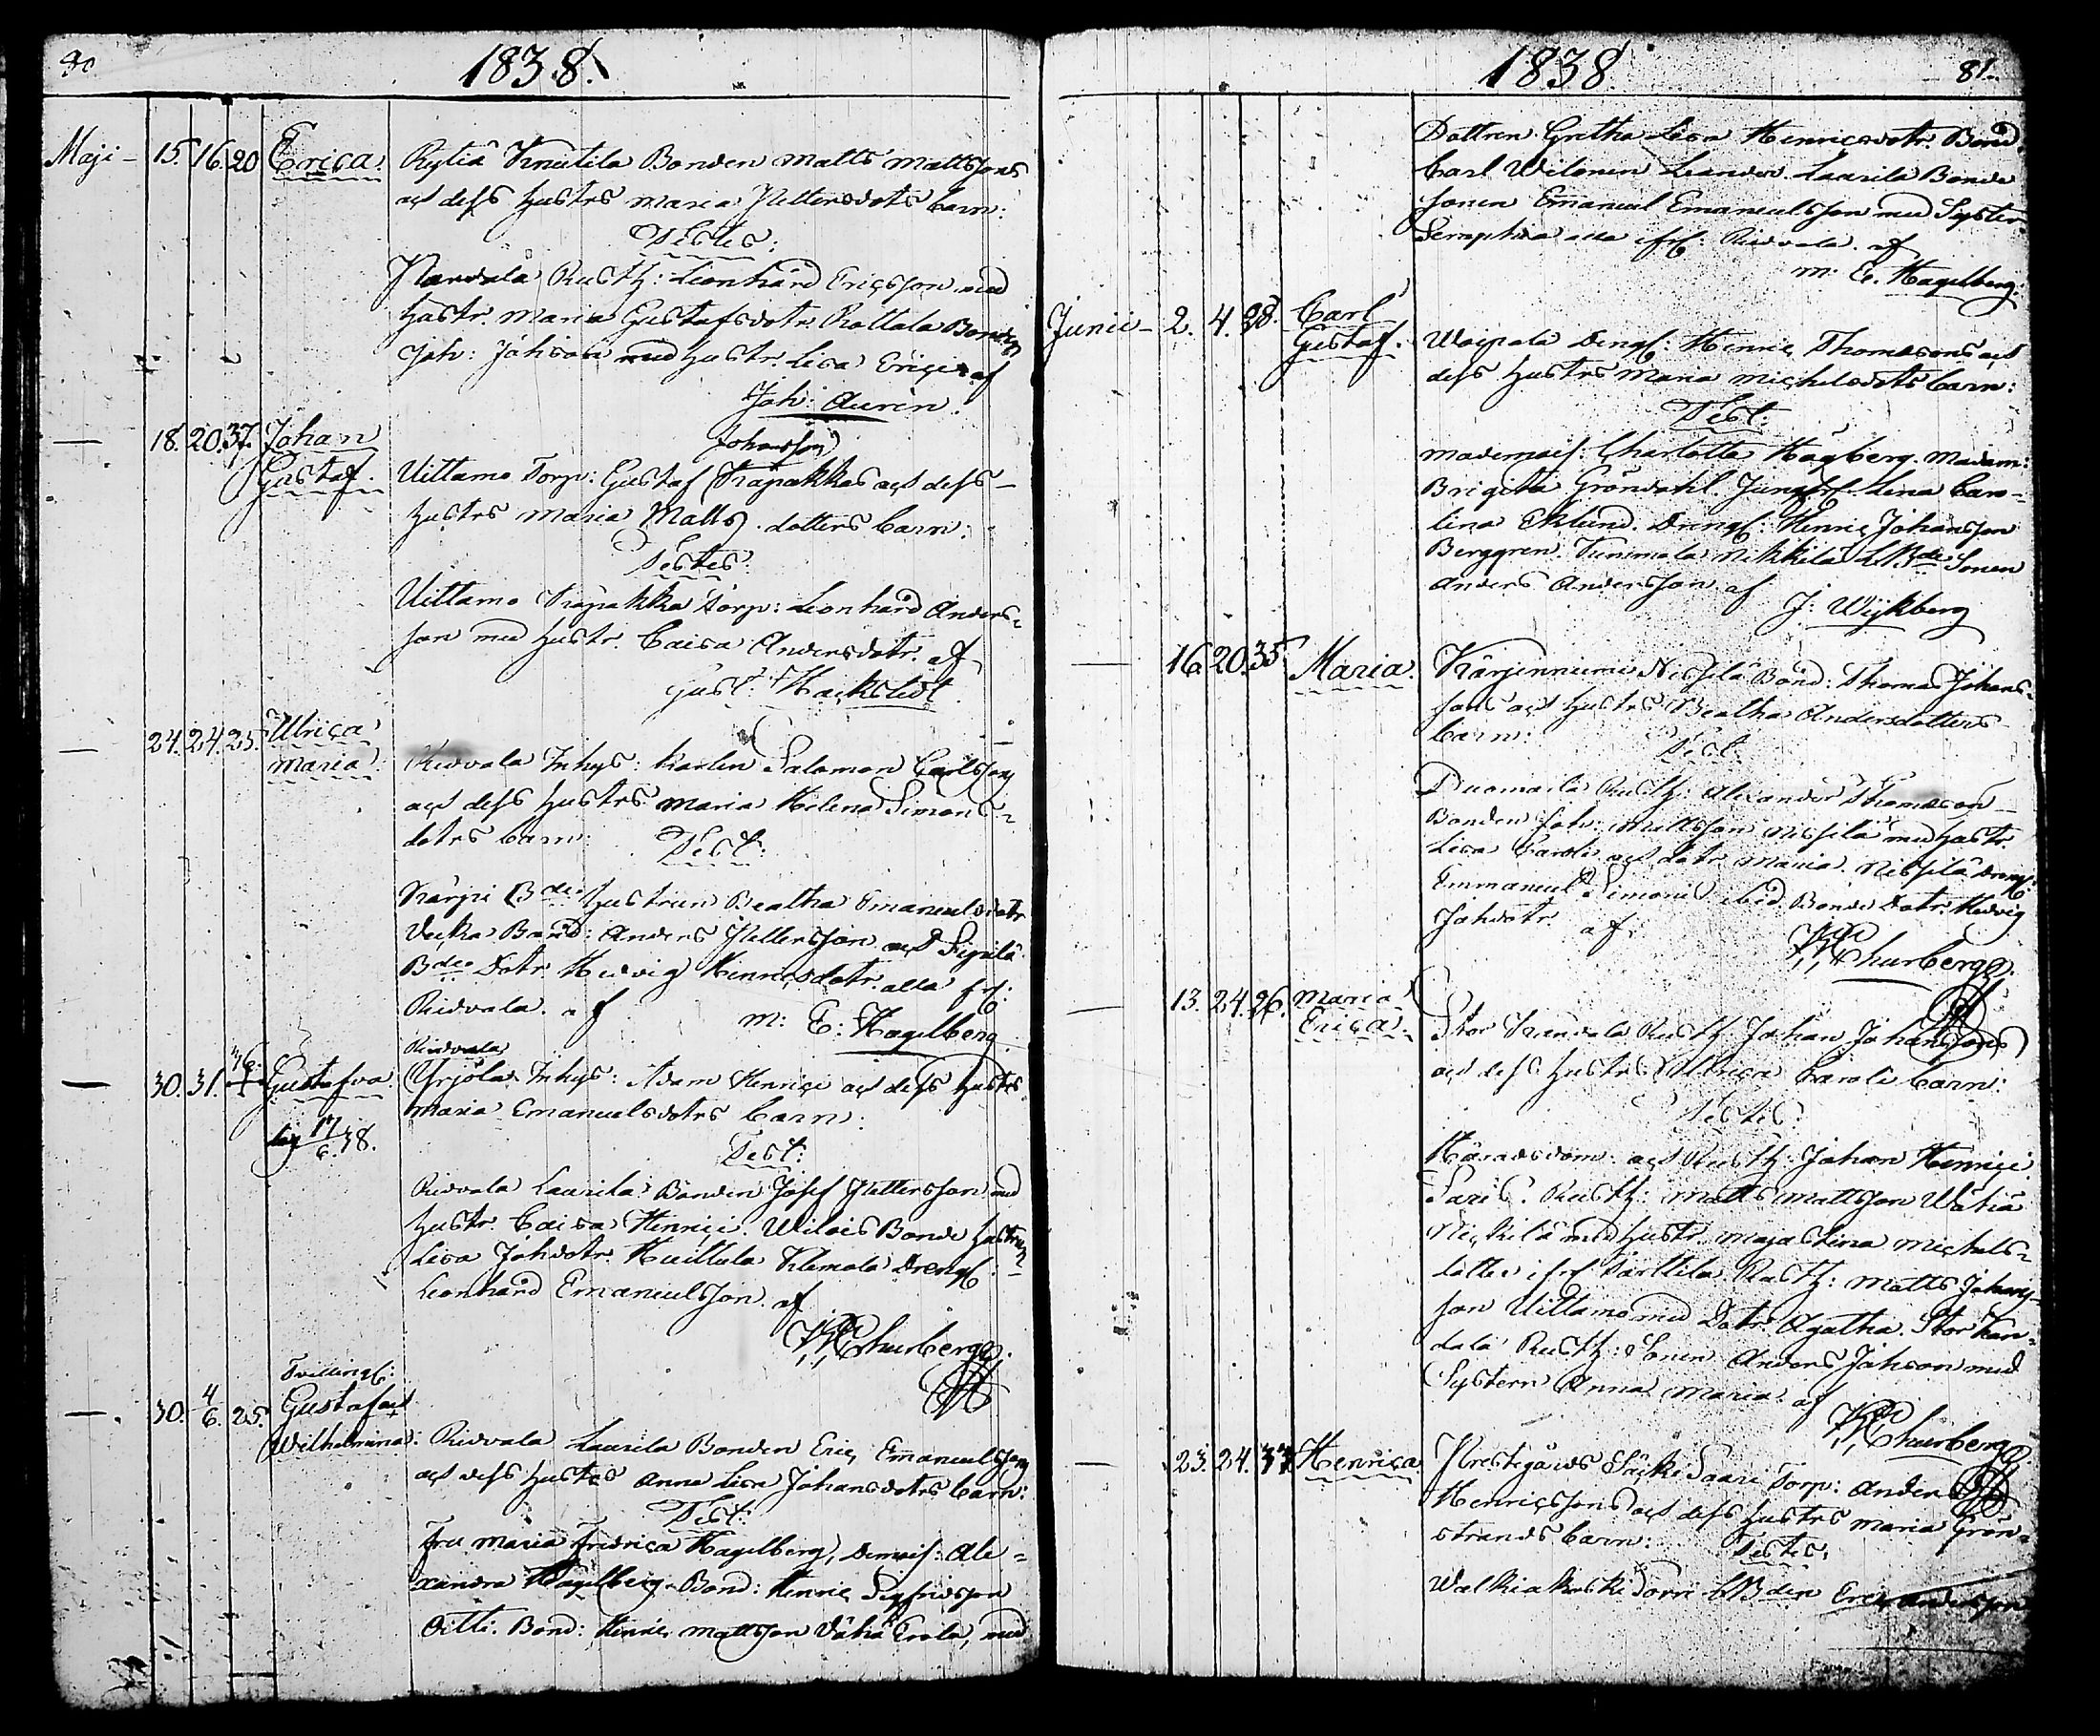 80
1838.
Maji - 15. 16. 20 Erica. Rytiä Knutila Bonden Matts Mattssons
och dess hustrs Maria Pettersdotrs barn:
Testes:
Rusth: Leonhard Ericsson med
hustr. Maria Gustafsdotr. Rottala Bonden
Joh: Johsson med hustr. Lisa Erici. af
Joh: Auren.
— 18. 20. 37. Johan
Gustaf.
Johansson
Uittamo Torp: Gustaf Träpakkas och dess
hustrs Maria Matts dotters barn:
Testes:
Uittamo Träpakka Torp: Leonhard Anders-
son med hustr. Caisa Andersdotr. af
Gust: Hackstedt.
— 24. 24. 25. Ulrica
Maria.
Ridvala Inhys: karlen Salomon Carlssons
och dess hustrs Maria Helena Simons-
dotrs barn:
Test:
Kärpi Bde hustrun Beatha Emanuelsdotr
Bond: Anders Pettersson och
Bde Dotr Hedvig Henricsdotr. alla frf:
Ridvala. af m: E: Hagelberg.
— 30. 31. 46. + Gustafva.
17/6 38.
Ridvala
Yrjölä Inhys: Adam Henrici och dess hustrs
Maria Emanuelsdotrs barn:
Test:
Ridvala Laurila Bonden Josef Pettersson med
hustr. Caisa Henrici. Wilois Bonde hustrun
Lisa Johdotr. Huittula Klemola Drengf:
Leonhard Emanuelsson. af
Churberg.
— . 30. 4/6. 25. Tvillingf:
Gustaf och
Wilhelmina: Ridvala Laurila Bonden Eric Emanuelssons
och dess hustrs Anna Lisa Johansdotrs barn:
Test:
Fru Maria Fredrica Hagelberg, Demois: Ale-
xandra Hagelberg. Bond: Henric Sigfridsson
Oitti. Bond: Henric Mattsson Vähä Erola, med
1838
81.
Dottren Gretha Lisa Henricsdotr. Bond.
Carl Wilonen Leander. Laurila Bonde
sonen Emanuel Emanuelsson med Syster
Seraphia alla ifrf: Ridvala. af
m: E. Hagelberg.
Junii - 2. 4. 28. Carl
Gustaf. Woipala Drengf: Henric Thomassons och
dess hustrs Maria Michelsdotrs barn:
Test:
Mademois: Charlotta Hagberg. Madam:
Brigitta Gröndahl. Jungfrf. Lina Caro-
lina Eklund. Drengf: Henric Johansson
Berggren. Tunimala Nikkilä LBde Sonen
Anders Andersson. af
J: Wijkberg
— 16. 20. 35. Maria. Kärjenniemi Nissilä Bond: Thomas Johans-
sons och hustrs Beatha Andersdotters
barn:
Test:
Duomaila Rusth: Alexander Thomasson
Bonden Joh: Mattsson Nissilä med hustr
Lisa Caroli och dotr Maria. Nissilä Drengf:
Emmanuel Simonis. ibid. Bonde Dotr. Hedvig
Johdotr. af.
Churberg.
— 13. 24. 26. Maria
Erica. Stor Kandala Rusth: Johan Johanssons
och dess hustrs Ulrica Caroli barn:
Testes:
Häradsdom: och Rusth: Johan Henrici
Saris. Rusth: Matts Mattsson Wähä
Nickilä med hustr. Maja Stina Michels-
dotter ifrf Parttila Rusth: Matts Johans-
son Uittamo med Dotr. Agatha. Stor Kan-
dala Rusth: Sonen Anders Johsson med
Systern Anna Maria. af
Churberg.
— 23. 24. 33. Henrica. Prestgårds Säcki Saari Torp: Anders
Henricssons och dess hustrs Maria Grön-
strands barn: Testes:
Walkiakoski Torri LBden Eric Andersson